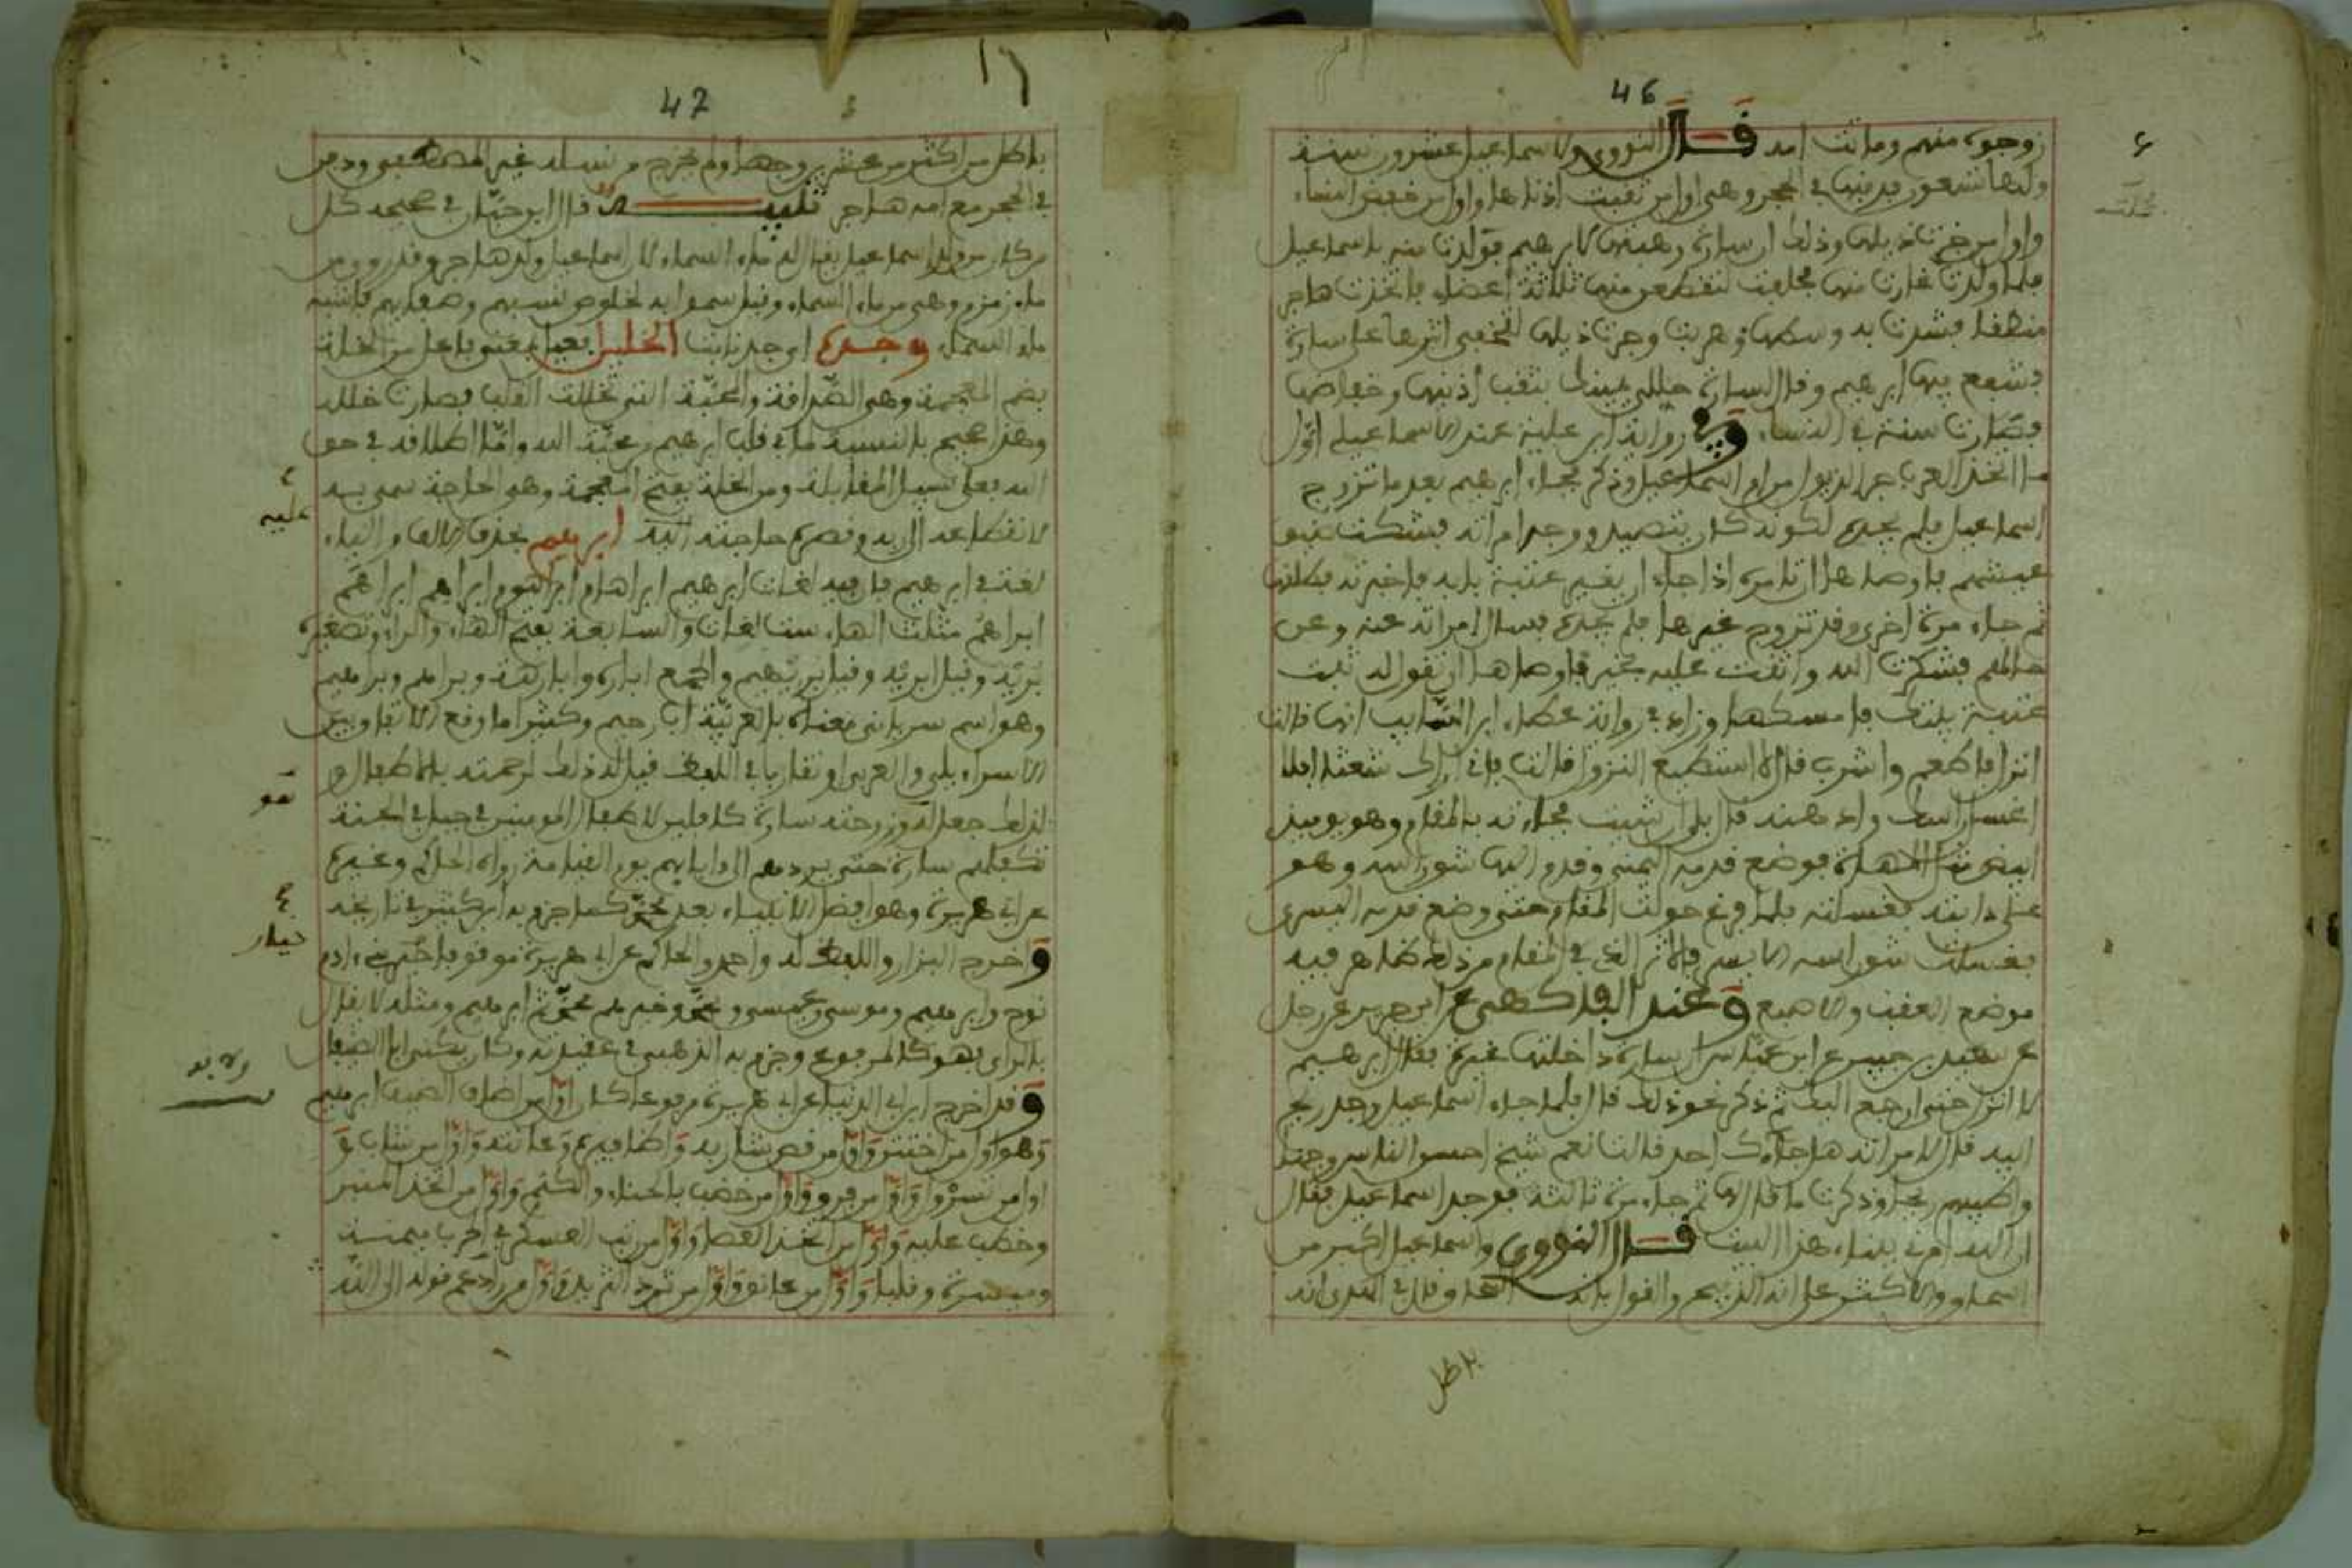 46
زوجوه منهم وماتت امه قال النووي ولاسماعيل عشرون سنة
ولها تسعون فدفنها في الحجر وهي اول من ثقبت اذناها واول من خفض من النساء
واول من جرت ذيلها وذلك ان سارة وهبتها لابرهيم فولدت منه باسماعيل
فلما ولدت غارت منها فحلفت لتقطعن منها ثلاثة اعضاء فاتخذت هاجر
منطقا فشدت به وسطها وهربت وجرت ذيلها لتخفي اثرها على سارة
فشفع فيها ابرهيم وقال لسارة حللي يمينك بثقب أذنيها وخفاضها
فصارت سنة في النساء وفي رواية ابن علية عند الاسماعيلي اول
ما اتخذ العرب جر الذيول من ام اسماعيل وذكر مجيء ابرهيم بعد ما تزوج
اسماعيل فلم يجده لكونه كان يتصيد ووجد امراته فشكت ضيق
عيشهم فاوصاها ان تامره اذا جاء ان يغير عتبة بابه فاخبرته فطلقها
ثم جاء مرة اخرى وقد تزوج غيرها فلم يجده فسال امراته عنه وعن
حالهم فشكرت الله واثنت عليه بخير فاوصاها ان تقول له ثبت
عتبة بيتك فامسكها وزاد في رواية عطاء ابن السايب انها قالت
انزل فاطعم واشرب قال لا استطيع النزول قالت فاني اراك شعثا افلا
اغسل راسك وادهنه قال بلى ان شيت فجاءته بالمقام وهو يوميذ
ابيض مثل المهاة فوضع قدمه اليمنى وقدم اليها شق راسه وهو
على دابته فغسلته فلما فرغ حولت المقام حتى وضع قدمه اليسرى
فغسلت شق راسه الايسر فالاثر الذي في المقام من ذلك ظاهر فيه
موضع العقب والاصبع وعند الفاكهي عن ابن جريج عن رجل
عن سعيد بن جبير عن ابن عباس ان سارة داخلتها غيرة فقال ابرهيم
لا انزل حتى ارجع اليك ثم ذكر نحو ذلك قال فلما جاء اسماعيل وجد ريح
ابيه فقال لامراته هل جاءك احد قالت نعم شيخ احسن الناس وجها
واطيبهم ريحا وذكرت ما قال ثم جاء مرة ثالثة فوجد اسماعيل فقال
ان الله امرني ببناء هذا البيت قال النووي واسماعيل اكبر من
اسحاق والاكثر على انه الذبيح والقول بانه
باطل
47
باطل من اكثر من عشرين وجها ولم يخرج من نسله غير المصطفى ودفن
في الحجر مع امه هاجر تنبيه قال ابن حبان في صحيحه كل
من كان من ولد اسماعيل يقال له ماء السماء لان اسماعيل ولد هاجر وقد روي من
ماء زمزم وهي من ماء السماء وقيل سموا به لخلوص نسبهم وصفايهم فاشبه
ماء السماء وجده اي جد نابت الخليل فعيل بمعنى فاعل من الخلة
بضم المعجمة وهي الصداقة والمحبة التي تخللت القلب فصارت خلاله
وهذا صحيح بالنسبة ما في قلب ابرهيم من محبة الله واما اطلاقه في حق
الله فعلى سبيل المقابلة ومن الخلة بفتح المعجمة وهي الحاجة سمي به
لانقطاعه الى ربه وقصره حاجته اليه ابرهيم بحذف الالف والياء
لغة في ابرهيم فان فيه لغات ابرهيم ابراهام ابراهوم ابراهم ابراهم
ابراهم مثلث الهاء ست لغات والسابعة بفتح الهاء والراء وتصغيره
بريه وقيل ابريه وقيل بريهيم والجمع اباره وابارهة وبراهم وبراهيم
وهو اسم سرياني معناه بالعربية اب رحيم وكثيرا ما وقع الاتفاق بين
السرياني والعربي او تقاربا في اللفظ قيل له ذلك لرحمته بالاطفال و
لذلك جعل الله وزوجته سارة كافلين لاطفال المومنين في جبل في الجنة
تكفلهم سارة حتى يردهم الى اباءهم يوم القيامة رواه الحاكم وغيره
عن ابي هريرة وهو افضل الانبياء بعد نبينا كما جزم به ابن كثير في تاريخه
واخرج البزار واللفظ له واحمد والحاكم عن ابي هريرة موقوفا خيار ولد ادم
نوح وابرهيم وموسى وعيسى ومحمد وخيرهم محمد ثم ابرهيم ومثله لا يقال
بالراي فهو كالمرفوع وجزم به الذهبي في عقيدته وكان يكنى ابا الضيفان
وقد اخرج ابن ابي الدنيا عن ابي هريرة مرفوعا كان اول من اضاف الضيف ابرهيم
وهو اول من اختتن واول من قص شاربه واظافره وعانته واول من شاب و
اول من تسرول واول من فرق واول من خضب بالحناء والكتم واول من اتخذ المنبر
وخطب عليه واول من اتخذ العصا واول من رتب العسكر في الحرب ميمنة
وميسرة وقلبا واول من عانق واول من ثرد الثريد واول من
عليه
نمو
خيار